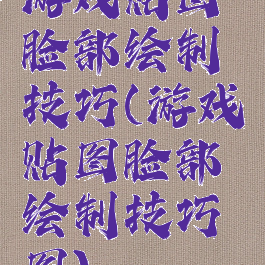 游戏贴图
脸部绘制
技巧(游戏
贴图脸部
绘制技巧
图)